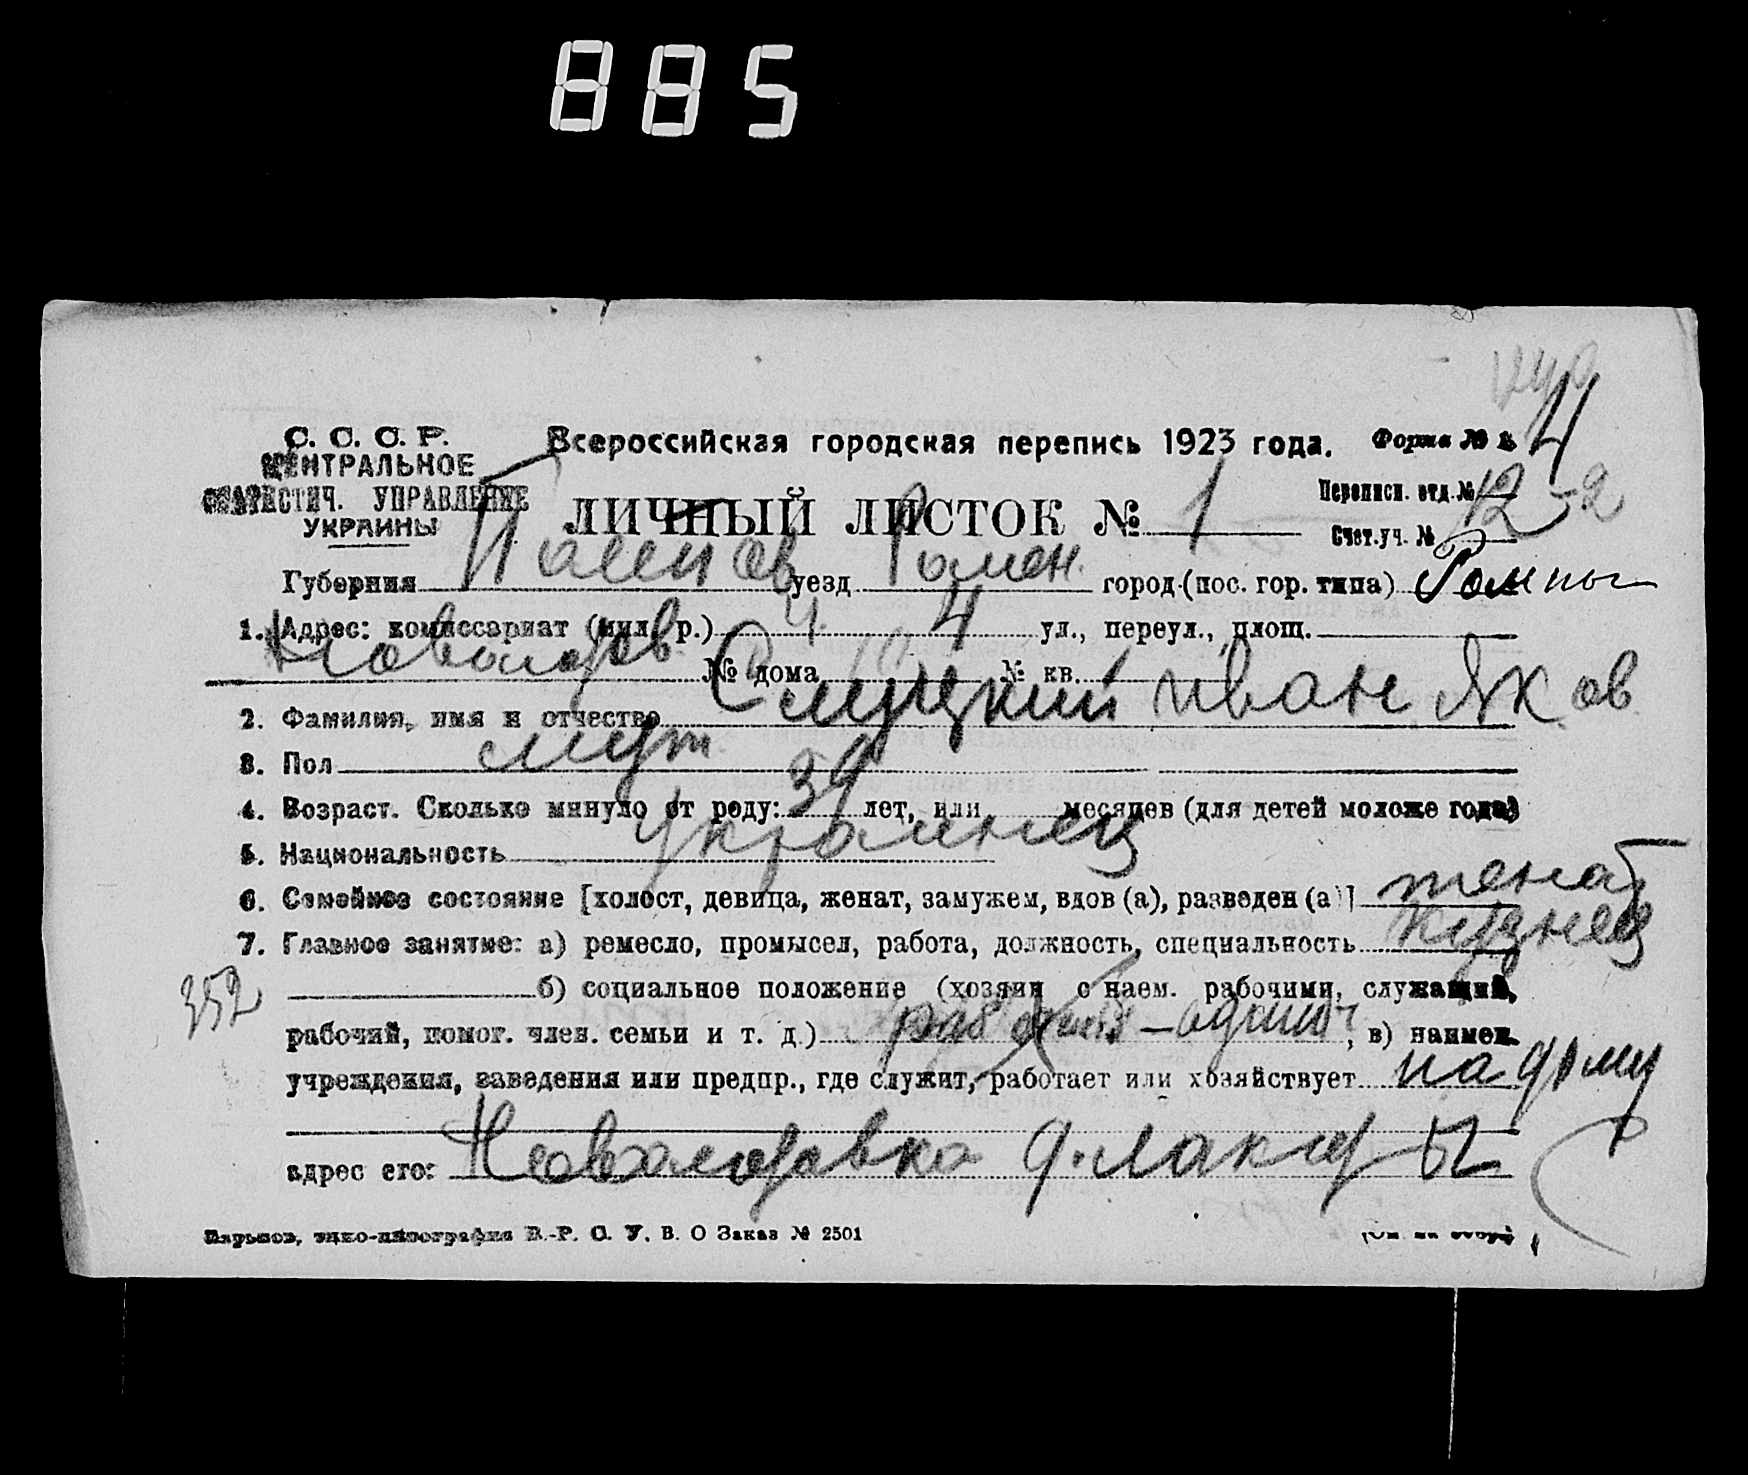 885
С. С. С. Р.
ЦЕНТРАЛЬНОЕ
СТАТИСТИЧ. УПРАВЛЕНИЕ
УКРАИНЫ
Всероссийская городская перепись 1923 года.
Форма № 4
ЛИЧНЫЙ ЛИСТОК № 1
Переписн. отд. № 12-2
Счет. уч. №
Губерния Полтав уезд Ромен. город (пос. гор. типа) Ромны
1. Адрес: комиссариат (мил. р.) 4 ул., переул., площ.
№ дома № кв.
2. Фамилия, имя и отчество Слуцкий Иван Яков
3. Пол муж.
4. Возраст. Сколько минуло от роду: 39 лет, или месяцев (для детей моложе года)
5. Национальность украинец
6. Семейное состояние [холост, девица, женат, замужем, вдов (а), разведен (а)] женат
7. Главное занятие: а) ремесло, промысел, работа, должность, специальность кузнец
352
б) социальное положение (хозяин с наем. рабочими, служащий,
рабочий, помог. член. семьи и т. д.) один, в) наимен.
учреждения, заведения или предпр., где служит, работает или хозяйствует на дому
адрес его:
Харьков, типо-литография В.-Р. С. У. В. О Заказ № 2501
(См. на обор.)